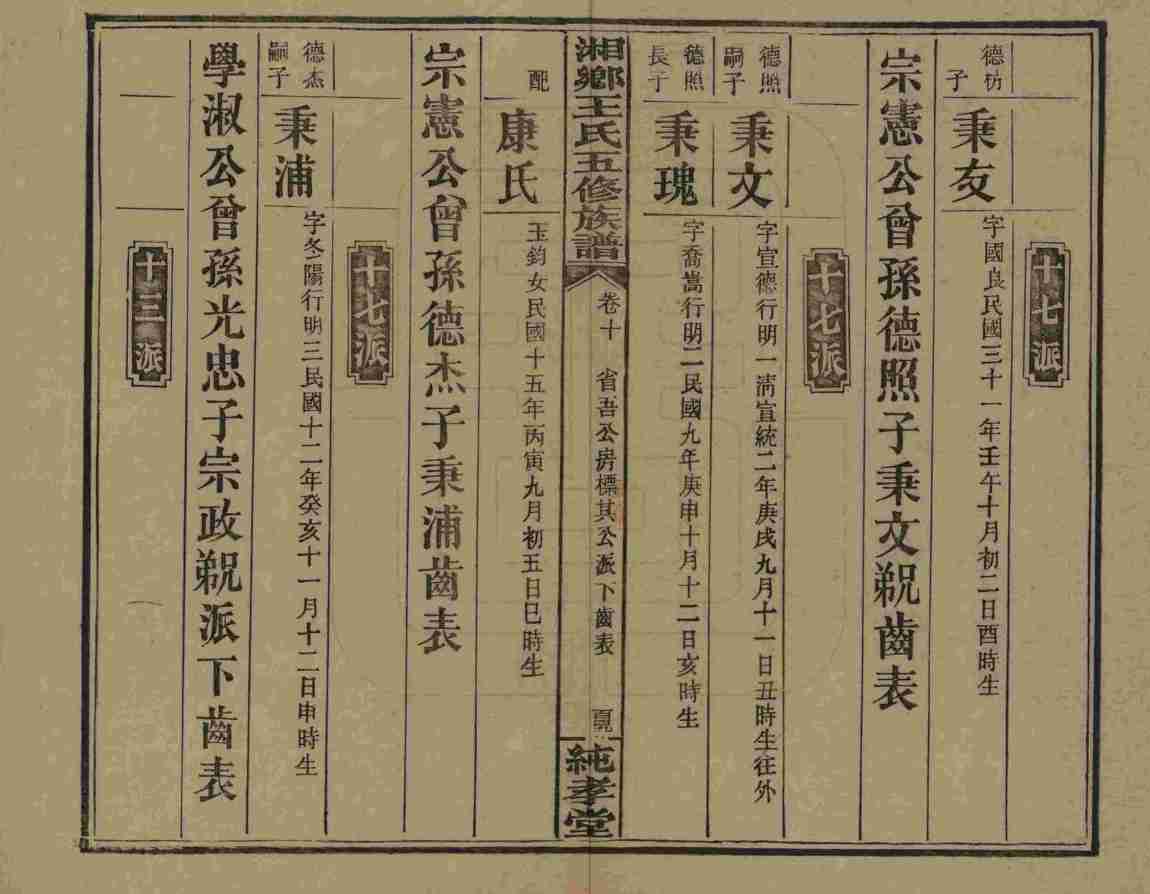 十七派
德枋子
秉友
字國良民國三十一年壬午十月初二日酉時生
宗憲公曾孫德照子秉文㒭齒表
十七派
德照嗣子
秉文
字宣德行明一淸宣統二年庚戌九月十一日丑時生往外
德照長子
秉瑰
字喬嵩行明二民國九年庚申十月十二日亥時生
湘鄉王氏五修族譜
卷十
省吾公房標其公派下齒表
純孝堂
配
康氏
玉鈞女民國十五年丙寅九月初五日巳時生
宗憲公曾孫德杰子秉浦齒表
十七派
德杰嗣子
秉浦
字冬陽行明三民國十二年癸亥十一月十二日申時生
學淑公曾孫光忠子宗政派下齒表
十三派